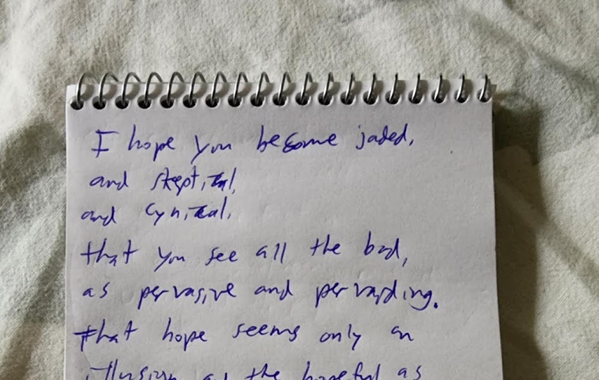 I hope you become jaded,
and skeptical,
and cynical,
that you see all the bad,
as pervasive and pervading.
that hope seems only an
illusion as the hopeful as